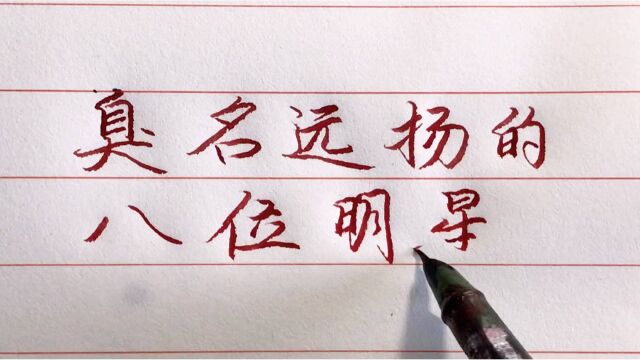 臭名远扬的
八位明星